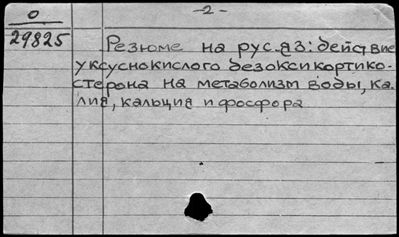 - 2 -
0
29825
Резюме на рус.яз: действие
уксуснокислого дезоксикортико-
стерона на метаболизм воды, ка-
лия, кальция и фосфора